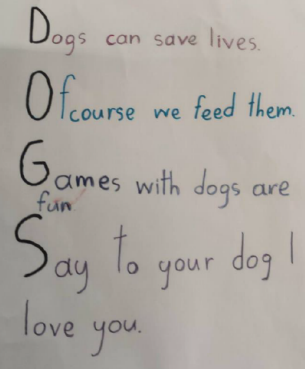 Dogs can save lives.
Of course we feed them.
Games with dogs are
fun
Say to your dog I
love you.